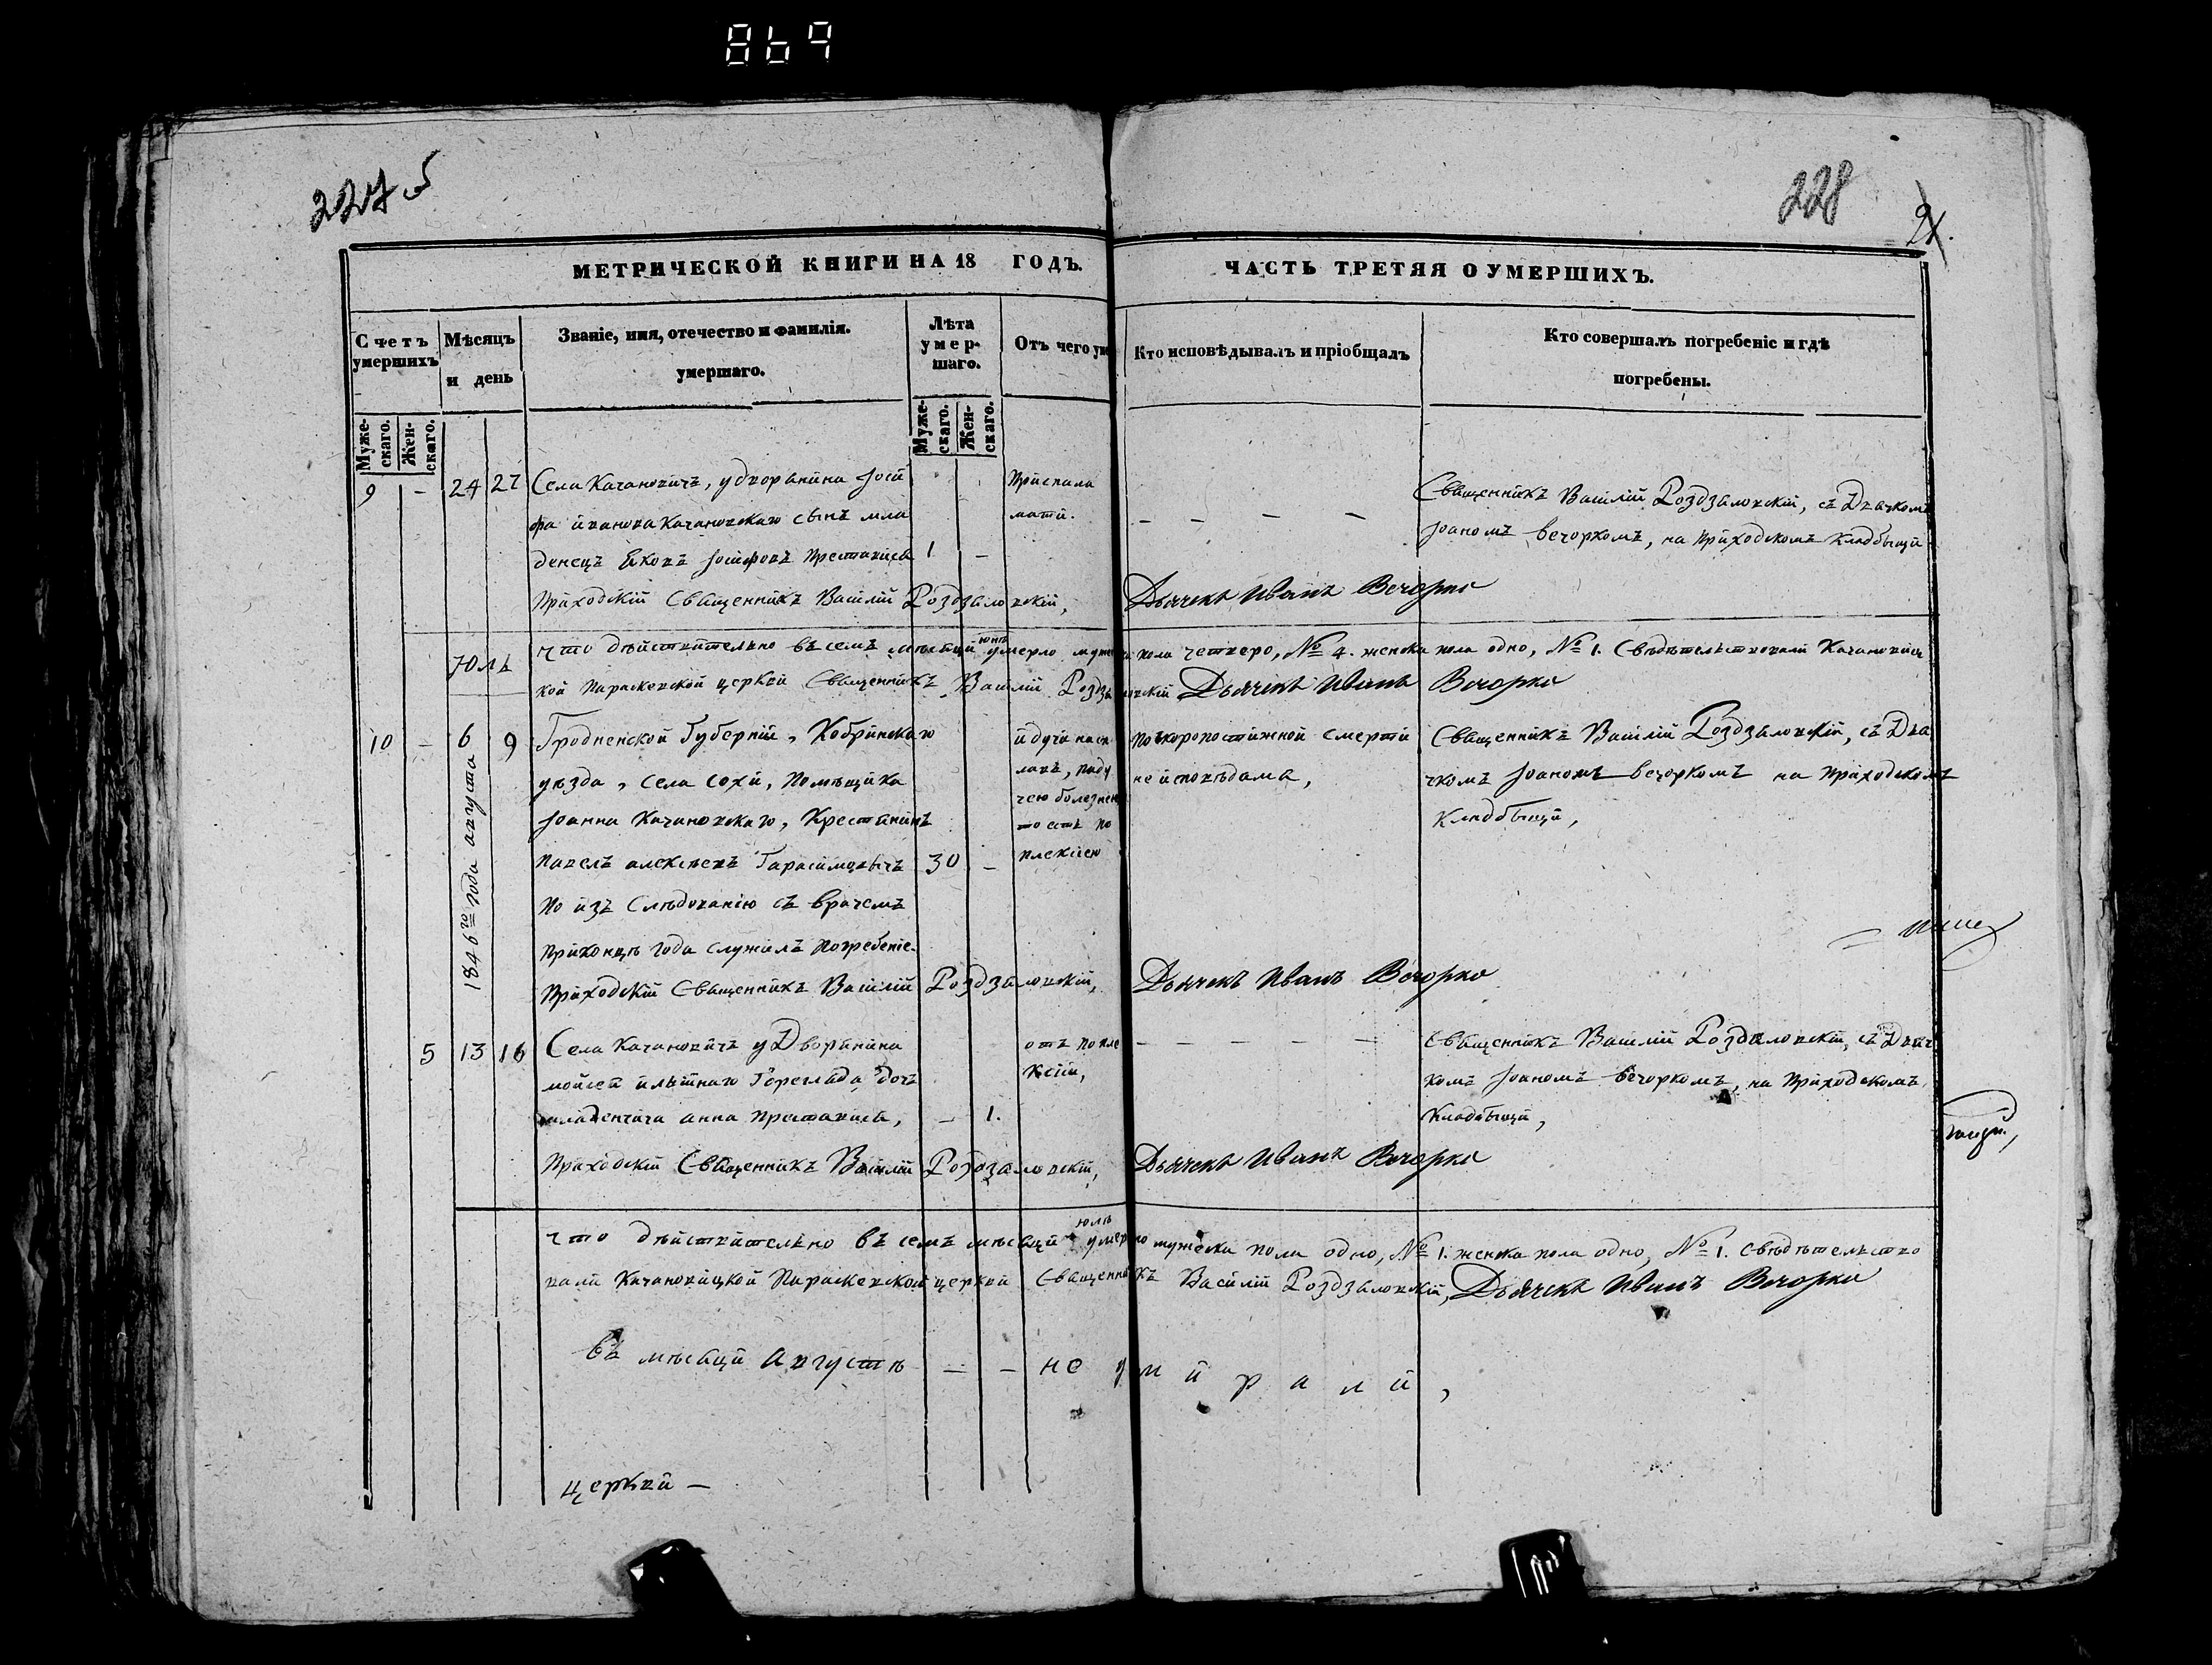 869
227 об
228
21.
МЕТРИЧЕСКОЙ КНИГИ НА 18 ГОДЪ.
ЧАСТЬ ТРЕТЯЯ О УМЕРШИХЪ.
Счетъ умершихъ
Мѣсяцъ и день
Званіе, имя, отечество и фамилія. умершаго.
Лѣта умершаго.
Отъ чего ум
Кто исповѣдывалъ и пріобщалъ
Кто совершалъ погребеніе и гдѣ погребены.
Мужескаго.
Женскаго.
Мужескаго.
Женскаго.
9 – 24 27
Села Качановичъ, у дворянина Іоси
фа иванова Качановскаго сынъ мла
денецъ Яковъ Іосифовъ Преставися
1 –
Приспала
мати.
– – – –
Священникъ Василій Роздзаловскій, съ Дьячкомъ
Іоаномъ Вечоркомъ, на Приходскомъ Кладбищи
Приходскій Священникъ Василій Роздзаловскій,
Дьячекъ Иванъ Вечорко
Что дѣйствительно въ семъ мѣсяци юнѣ умерло мужеска пола четверо, № 4. женска пола одно, № 1. Свѣдѣтельствовали Качановиц
кой Параскевской церкви Священникъ Василій Роздзаловскій Дьячекъ Иванъ Вечорко
Юль
1846го года августа
10 – 6 9
Гродненской Губерніи, Кобринскаго
уѣзда, села Сохи, Помѣщика
Іоанна Качановскаго, Крестянинъ
Павелъ алексѣевъ Гарасимовичъ
30 –
По изъ Слѣдованію съ врачемъ
Приконцѣ года служилъ Погребеніе.
идучи насп
лавъ, паду
чею болезнею
то естъ по
плексіею
Поскоропостижной смерти
не исповѣдама,
Священникъ Василій Роздзаловскій, съ Дья
чкомъ Іоаномъ Вечоркомъ на Приходскомъ
Кладбищи,
Приходскій Священникъ Василій Роздзаловскій,
Дьячекъ Иванъ Вечорко
5 13 16
Села Качановичъ у Дворянина
мойсея Горегляда дочъ
младенчича анна Преставися,
– 1.
отъ попле
ксіи,
– – – – –
Священникъ Василій Роздзаловскій, съ Дьяч
комъ Іоаномъ Вечоркомъ, на Приходскомъ
Кладбищи,
Приходскій Священникъ Василій Роздзаловскій,
Дьячекъ Иванъ Вечорко
что дѣйствительно въ семъ мѣсяци юлѣ умерло мужеска пола одно, № 1. женска пола одно, № 1. свѣдѣтельство
вали Качановицкой Параскевской церкви Священникъ Василій Роздзаловскій, Дьячекъ Иванъ Вечорко
Въ мѣсяци Августѣ – – не умирали,
церкви –